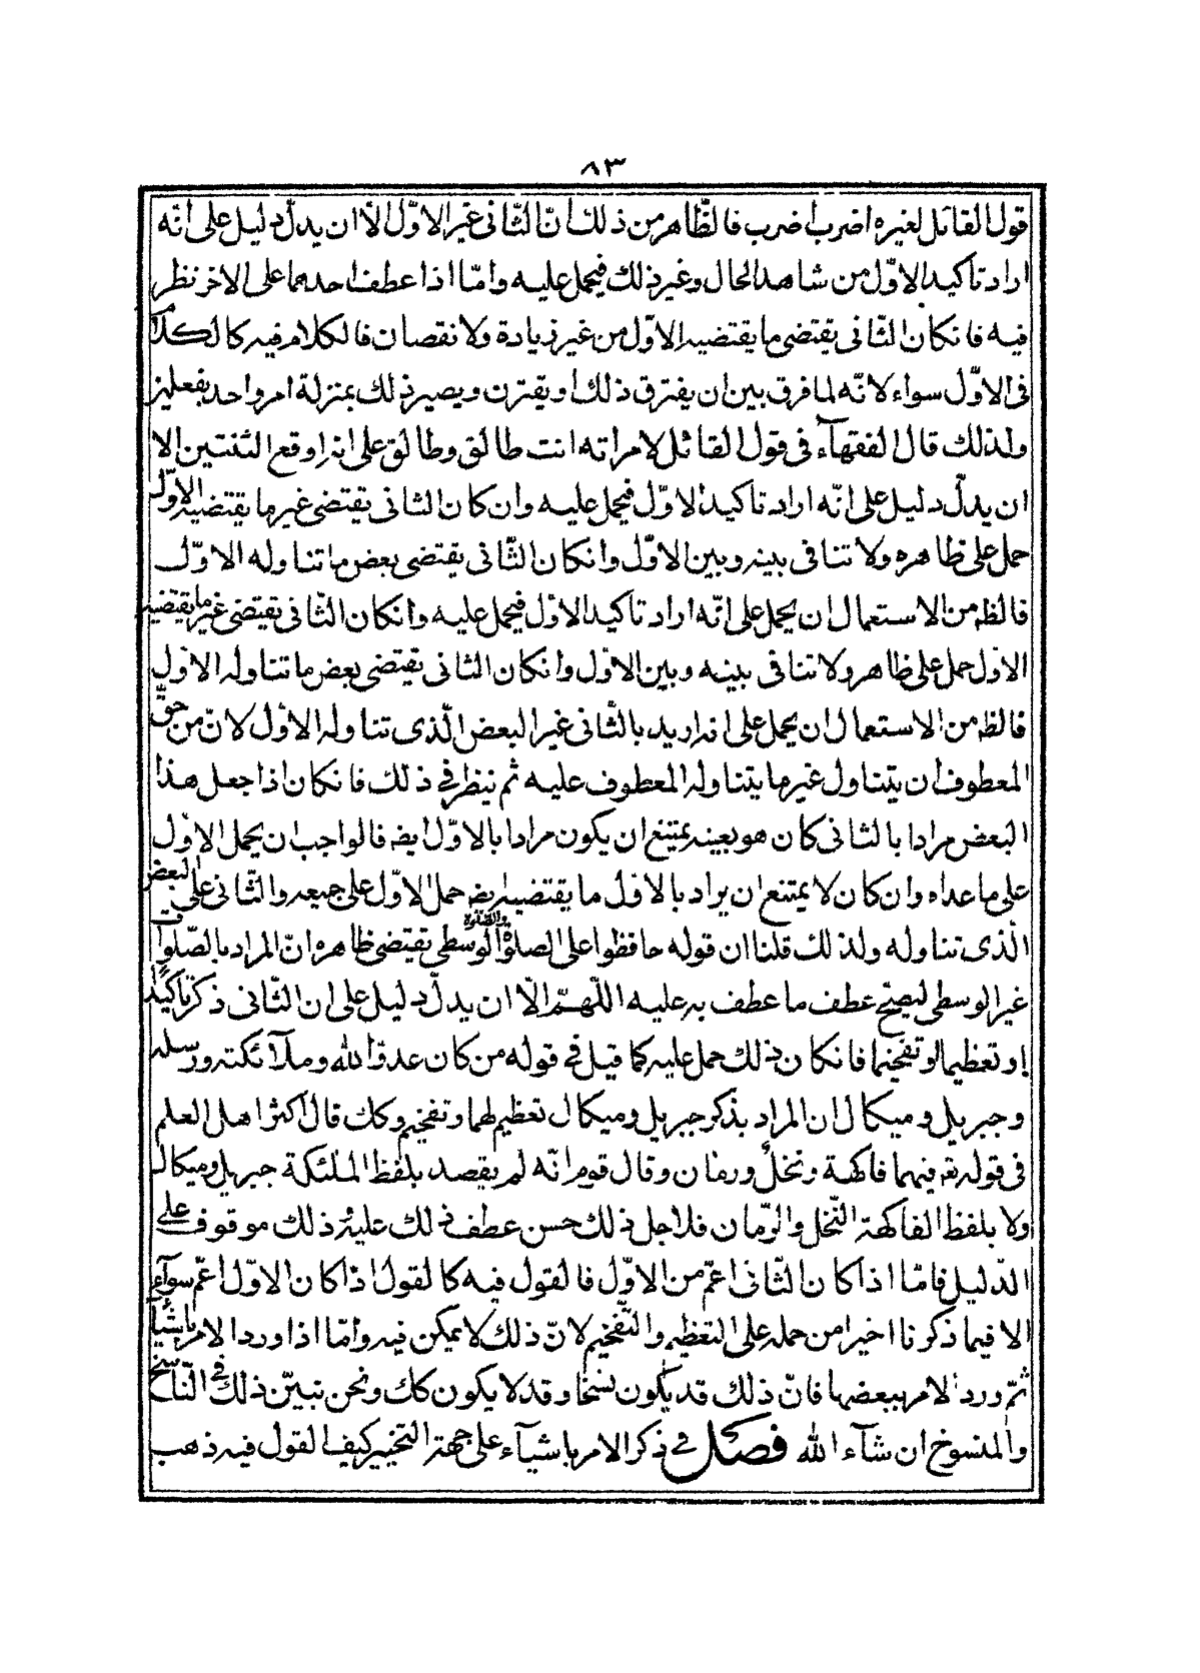 ٨٣
قول القائل لغيره اضرب اضرب فالظّاهر من ذلك انّ الثّانى غير الاوّل الّا ان يدلّ دليل على انّه
اراد تاكيد الاوّل من شاهد الحال وغير ذلك فيحمل عليه وامّا اذا عطف احدهما على الاخر نظر
فيه فانكان الثّانى يقتضى ما يقتضيه الاوّل من غير زيادة ولا نقصان فالكلام فيه كالكلام
فى الاوّل سواء لانّه لما فرق بين ان يفترق ذلك او يقترن ويصير ذلك بمنزلة امر واحد بفعلين
ولذلك قال الفقهآء فى قول القائل لامراته انت طالق وطالق على انه اوقع الثنتين الا
ان يدلّ دليل على انّه اراد تاكيد الاوّل فيحمل عليه وان كان الثانى يقتضى غير ما يقتضيه الاوّل
حمل على ظاهره ولا تنافى بينه وبين الاوّل وانكان الثّانى يقتضى بعض ما تناوله الاوّل
فالظ من الاستعمال ان يحمل على انّه اراد تاكيد الاوّل فيحمل عليه وانكان الثّانى يقتضى غير ما يقتضيه
الاوّل حمل على ظاهره ولا تنافى بينه وبين الاوّل وانكان الثانى يقتضى بعض ما تناوله الاوّل
فالظ من الاستعمال ان يحمل على انه اريد بالثّانى غير البعض الّذى تناوله الاوّل لانّ من حقّ
المعطوف ان يتناول غير ما يتناوله المعطوف عليه ثم ينظر في ذلك فانكان اذا جعل هذا
البعض مرادا بالثانى كان هو بعينه يمتنع ان يكون مرادا بالاوّل ايض فالواجب ان يحمل الاوّل
على ما عداه وان كان لا يمتنع ان يراد بالاوّل ما يقتضيه ايض حمل الاوّل على جميعه والثّانى على البعض
الّذى تناوله ولذلك قلنا ان قوله حافظوا على الصلوات والصّلوة الوسطى يقتضى ظاهره انّ المراد بالصّلوات
غير الوسطى ليصحّ عطف ما عطف به عليه اللّهمّ الّا ان يدلّ دليل على ان الثّانى ذكر تاكيدًا
او تعظيما او تفخيما فانكان ذلك حمل عليه كما قيل في قوله من كان عدوّا لله وملآئكته ورسله
وجبريل وميكال ان المراد بذكر جبريل وميكال تعظيم لهما وتفخيم وكك قال اكثر اهل العلم
فى قوله تع فيهما فاكهة ونخلٌ ورمّان وقال قوم انّه لم يقصد بلفظ الملئكة جبريل وميكال
ولا بلفظ الفاكهة النّخل والرّمان فلاجل ذلك حسن عطف ذلك عليه وذلك موقوف على
الدّليل فامّا اذا كان الثّانى اعمّ من الاوّل فالقول فيه كالقول اذا كان الاوّل اعمّ سوآء
الا فيما ذكرنا اخيرا من حمله على التعظيم والتّفخيم لانّ ذلك لا يمكن فيه وامّا اذا ورد الامر باشيآء
ثمّ ورد الامر ببعضها فانّ ذلك قد يكون نسخا وقد لا يكون كك ونحن نبيّن ذلك في النّاسخ
والمنسوخ ان شآء الله فصل في ذكر الامر باشيآء على جهة التخيير كيف القول فيه ذهب